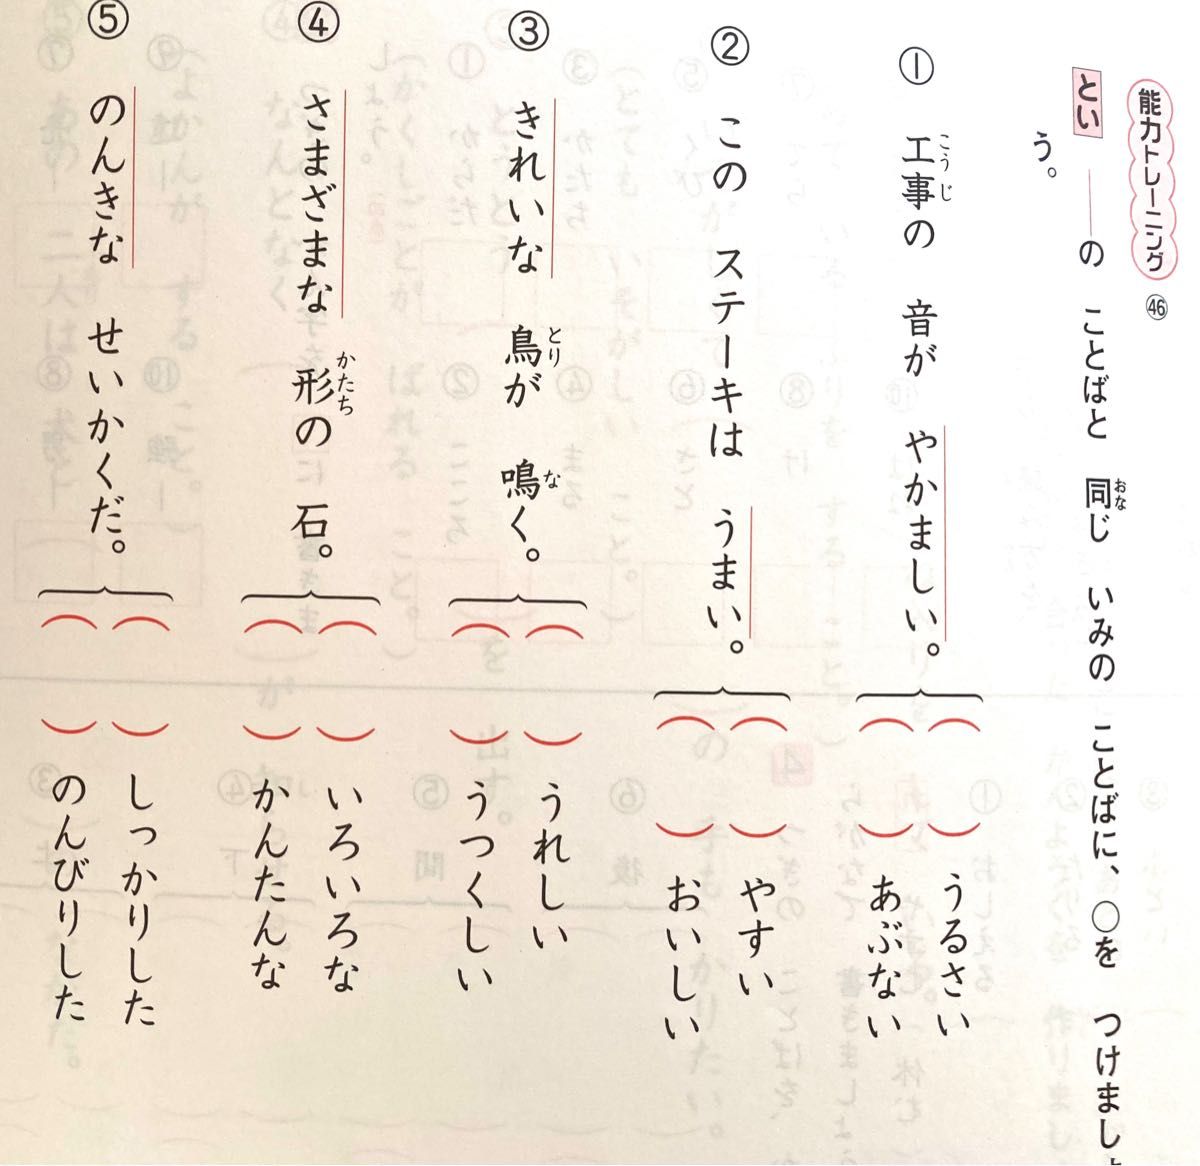 能力トレーニング ㊻
とい ――の ことばと 同じ いみの ことばに、○を つけましょ
う。
① 工事の 音が やかましい。
( ) うるさい
( ) あぶない
② この ステーキは うまい。
( ) やすい
( ) おいしい
③ きれいな 鳥が 鳴く。
( ) うれしい
( ) うつくしい
④ さまざまな 形の 石。
( ) いろいろな
( ) かんたんな
⑤ のんきな せいかくだ。
( ) しっかりした
( ) のんびりした